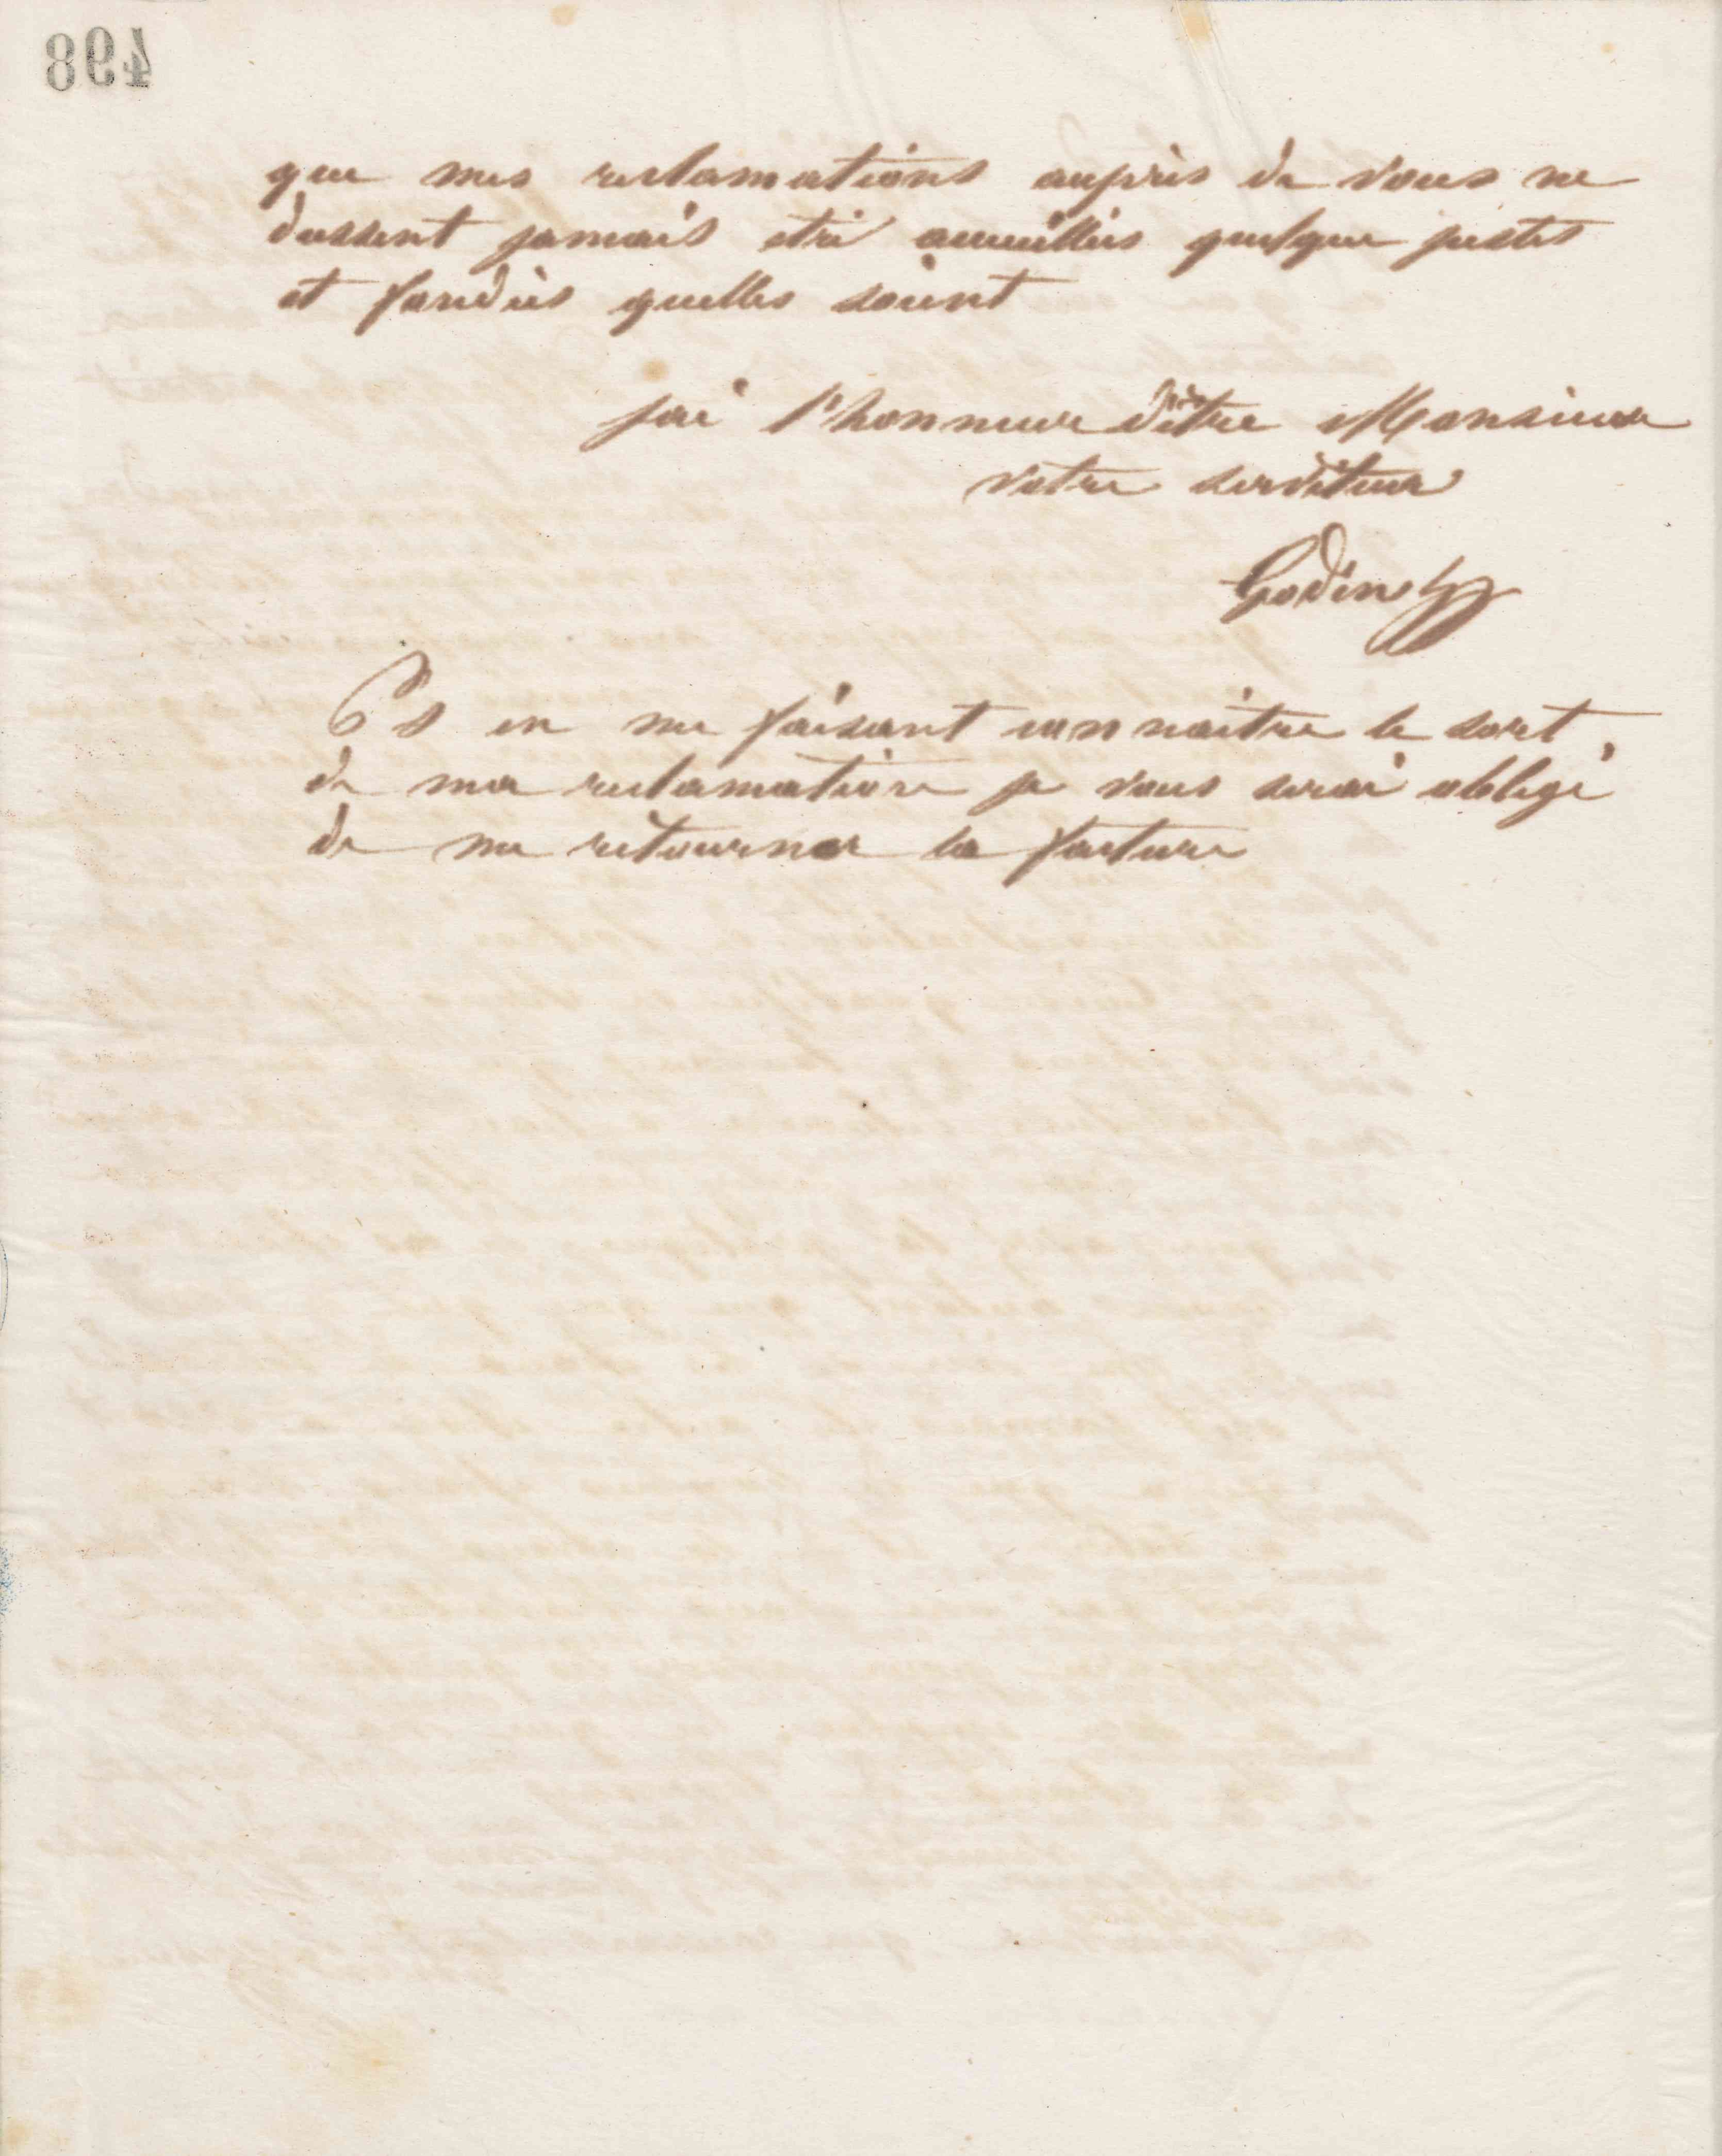 498
que mes reclamations auprès de vous ne
dussent jamais etre accueillies quelque justes
et fondées quelles soient
jai l'honneur d'être Monsieur
votre serviteur
Godin
Ps en me faisant connaitre le sort
de ma reclamation je vous serai obligé
de me retourner la facture